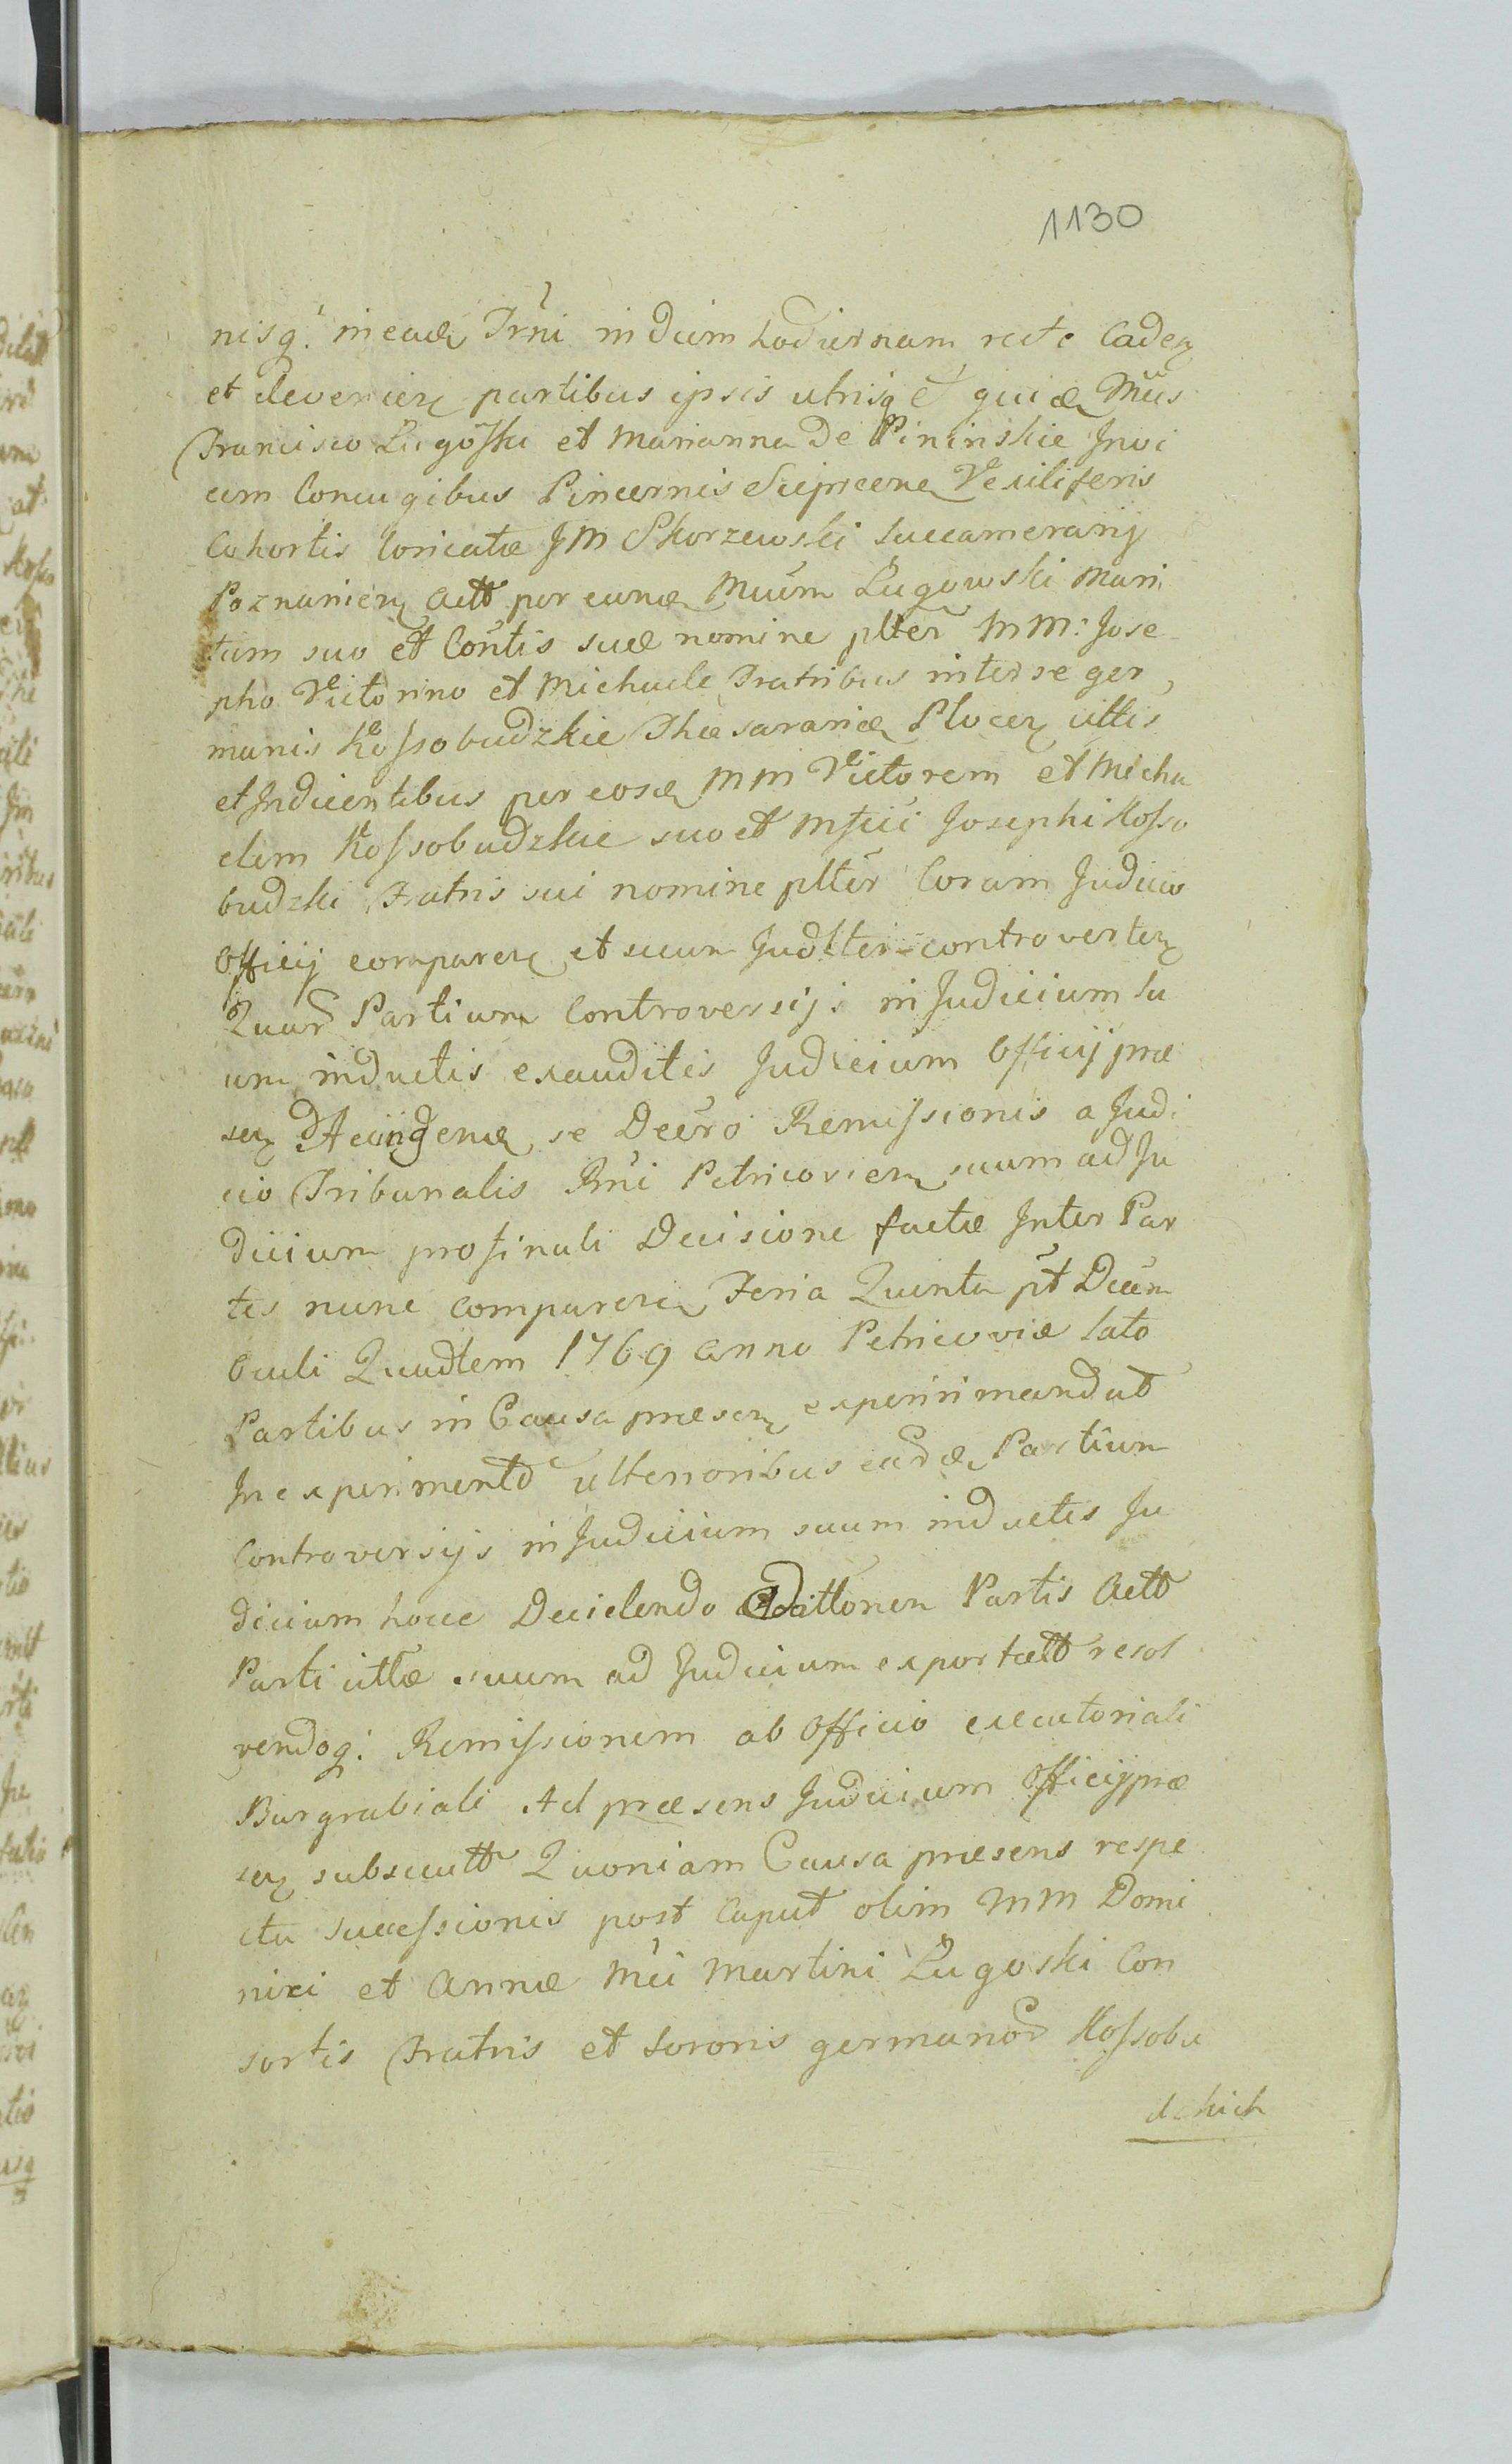 1130
nisq: in eade Trni in diem hodiernam recte Caden
et devenien partibus ipsis utrisq e quide Mcus
Francisco Lugoski et Marianna de Pininskie Invi
cem Coniugibus Pincernis Sieprcen Vexiliferis
Cohortis Loricatæ JM Skorzewski Succamerarij
Poznanien Actt per eunde Mcum Ługowski Mari
tum suo et Contis suæ nomine plter MM: Jose
pho Victorino et Michaele Fratribus inter se ger
manis Kossobudzkie Thesaurariæ Plocen cittis
et Inducentibus per eosde MM Victorem et Micha
elem Kossobudzkie suo et Mfici Josephi Kosso
budzki Fratris sui nomine plter Coram Judicio
Officij comparen et secum Judlter controverten
Quar Partium Controversijs in Judicium Su
um inductis exauditis Judicium Officij præ
sen Accingendæ se Decro Remissionis a Judi
cio Tribunalis Rni Petricovien suum ad Ju
dicium pro finali Decisione factæ Inter Par
tes nunc comparen Feria Quinta pt Dcam
Oculi Quadlem 1769 Anno Petricoviæ lato
Partibus in Causa præsen experiri mandat
In experimento ulterioribus earde Partium
Controversijs in Judicium suum inductis Ju
dicium hocce Decidendo Cittonem Partis Actt
Parti cittæ suum ad Judicium exportatt resol
vendoq: Remissionem ab Officio executoriali
Burgrabiali Ad præsens Judicium Officij præ
sen subsecutt Quoniam Causa præsens respe
ctu successionis post Caput olim MM Domi
nici et Annæ Mci Martini Ługoski Con
sortis Fratris et Sororis germanor Kossobu
dzkich